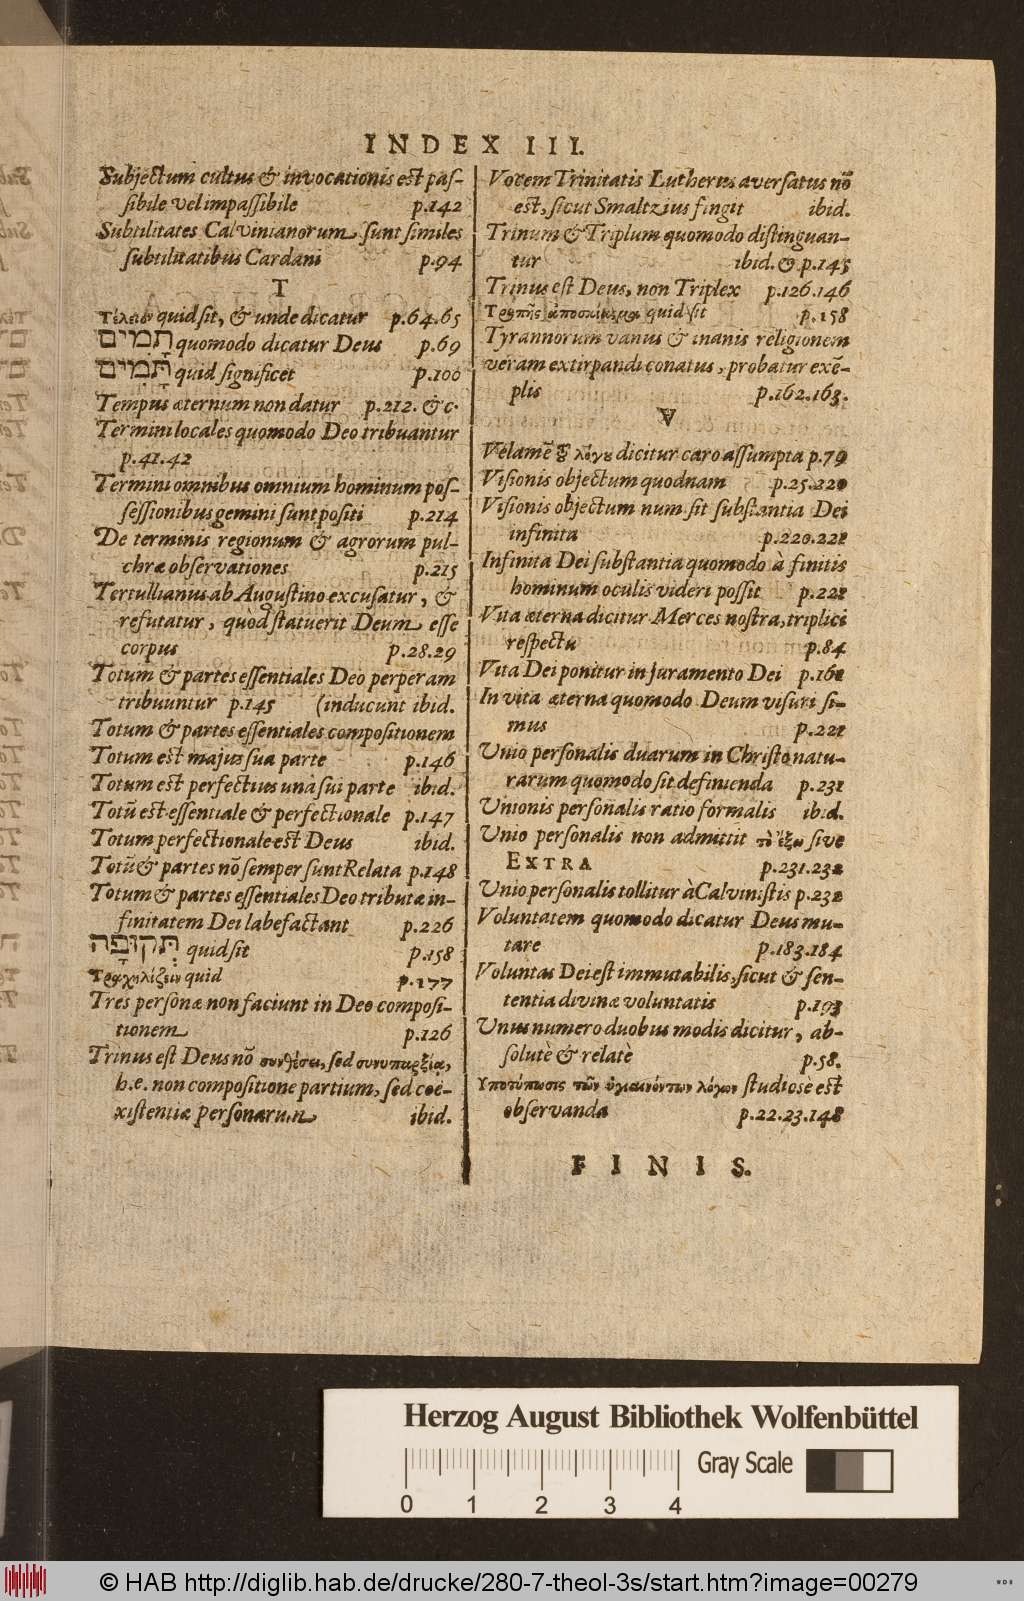 INDEX III.
Subjectum cultus & invocationis est pas-
sibile vel impassibile p.142
Subtilitates Calvinianorum sunt similes
subtilitatibus Cardani p.94
T
Τέλειον quid sit, & unde dicatur p.64.65
תָמִים quomodo dicatur Deus p.69
תָּמִים quid significet p.100
Tempus æternum non datur p.212. &c.
Termini locales quomodo Deo tribuantur
p.41.42
Termini omnibus omnium hominum pos-
sessionibus gemini sunt positi p.214
De terminis regionum & agrorum pul-
chræ observationes p.215
Tertullianus ab Augustino excusatur, &
refutatur, quòd statuerit Deum esse
corpus p.28.29
Totum & partes essentiales Deo perperam
tribuuntur p.145 (inducunt ibid.
Totum & partes essentiales compositionem
Totum est majus sua parte p.146
Totum est perfectius unà sui parte ibid.
Totũ est essentiale & perfectionale p.147
Totum perfectionale est Deus ibid.
Totũ & partes nõ semper sunt Relata p.148
Totum & partes essentiales Deo tributæ in-
finitatem Dei labefactant p.226
תְּקוּפָה quid sit p.158
Τραχηλίζειν quid p.177
Tres personæ non faciunt in Deo composi-
tionem p.126
Trinus est Deus nõ συνθέσει, sed συνυπαρξίᾳ,
h.e. non compositione partium, sed coë-
xistentiæ personarum ibid.
Vocem Trinitatis Lutherus aversatus nõ
est, sicut Smaltzius fingit ibid.
Trinum & Triplum quomodo distinguan-
tur ibid. & p.145
Trinus est Deus, non Triplex p.126.146
Τροπῆς ἀποσκίασμα quid sit p.158
Tyrannorum vanus & inanis religionem
veram extirpandi conatus, probatur exẽ-
plis p.162.163.
V
Velamẽ τοῦ λόγου dicitur caro assumpta p.79
Visionis objectum quodnam p.25.220
Visionis objectum num sit substantia Dei
infinita p.220.221
Infinita Dei substantia quomodo à finitis
hominum oculis videri possit p.221
Vita æterna dicitur Merces nostra, triplici
respectu p.84
Vita Dei ponitur in juramento Dei p.161
In vita æterna quomodo Deum visuri si-
mus p.221
Unio personalis duarum in Christo natu-
rarum quomodo sit definienda p.231
Unionis personalis ratio formalis ibid.
Unio personalis non admittit τὸ ἔξω sive
EXTRA p.231.232
Unio personalis tollitur à Calvinistis p.232
Voluntatem quomodo dicatur Deus mu-
tare p.183.184
Voluntas Dei est immutabilis, sicut & sen-
tentia divinæ voluntatis p.193
Unus numero duobus modis dicitur, ab-
solutè & relatè p.58.
Ὑποτύπωσις τῶν ὑγιαινόντων λόγων studiosè est
observanda p.22.23.148
FINIS.
Herzog August Bibliothek Wolfenbüttel
Gray Scale
0 1 2 3 4
© HAB http://diglib.hab.de/drucke/280-7-theol-3s/start.htm?image=00279